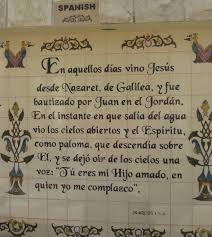 SPANISH
En aquellos días vino Jesús
desde Nazaret, de Galilea, y fue
bautizado por Juan en el Jordán.
En el instante en que salía del agua
vio los cielos abiertos y el Espíritu,
como paloma, que descendía sobre
El, y se dejó oir de los cielos una
voz: "Tú eres mi Hijo amado, en
quien yo me complazco".